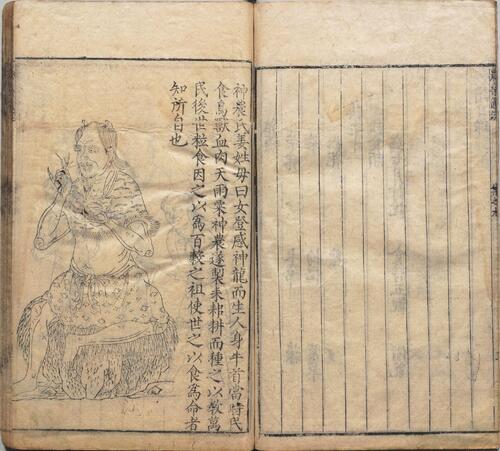 神農氏姜姓母曰女登感神龍而生人身牛首當時民
食鳥獸血肉天雨粟神農遂製耒耜耕而種之以教萬
民後世粒食因之以為百穀之祖使世之以食為命者
知所自也